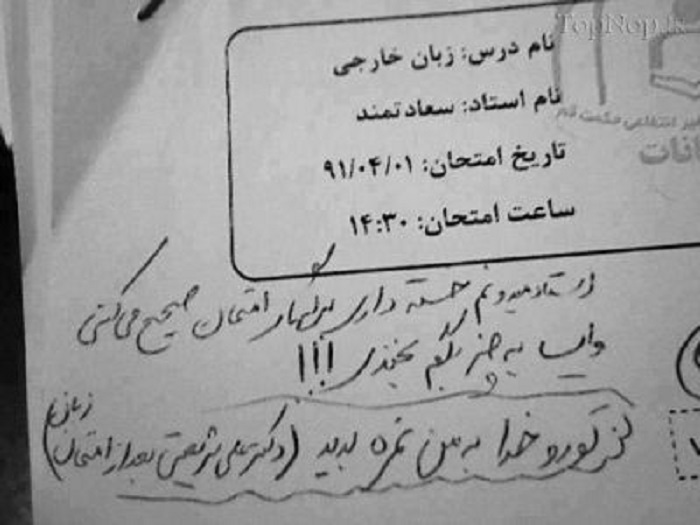 TopNop.ir
نام درس: زبان خارجی
نام استاد: سعادتمند
تاریخ امتحان: ۹۱/۰۴/۰۱
ساعت امتحان: ۱۴:۳۰
استاد میدونم خسته داری امتحان صحیح می‌کنی
وایسا یه چیز بگم بخندی !!!
تورو خدا به من نمره بدید (دکتر علی شریعتی بعد از امتحان زبان)